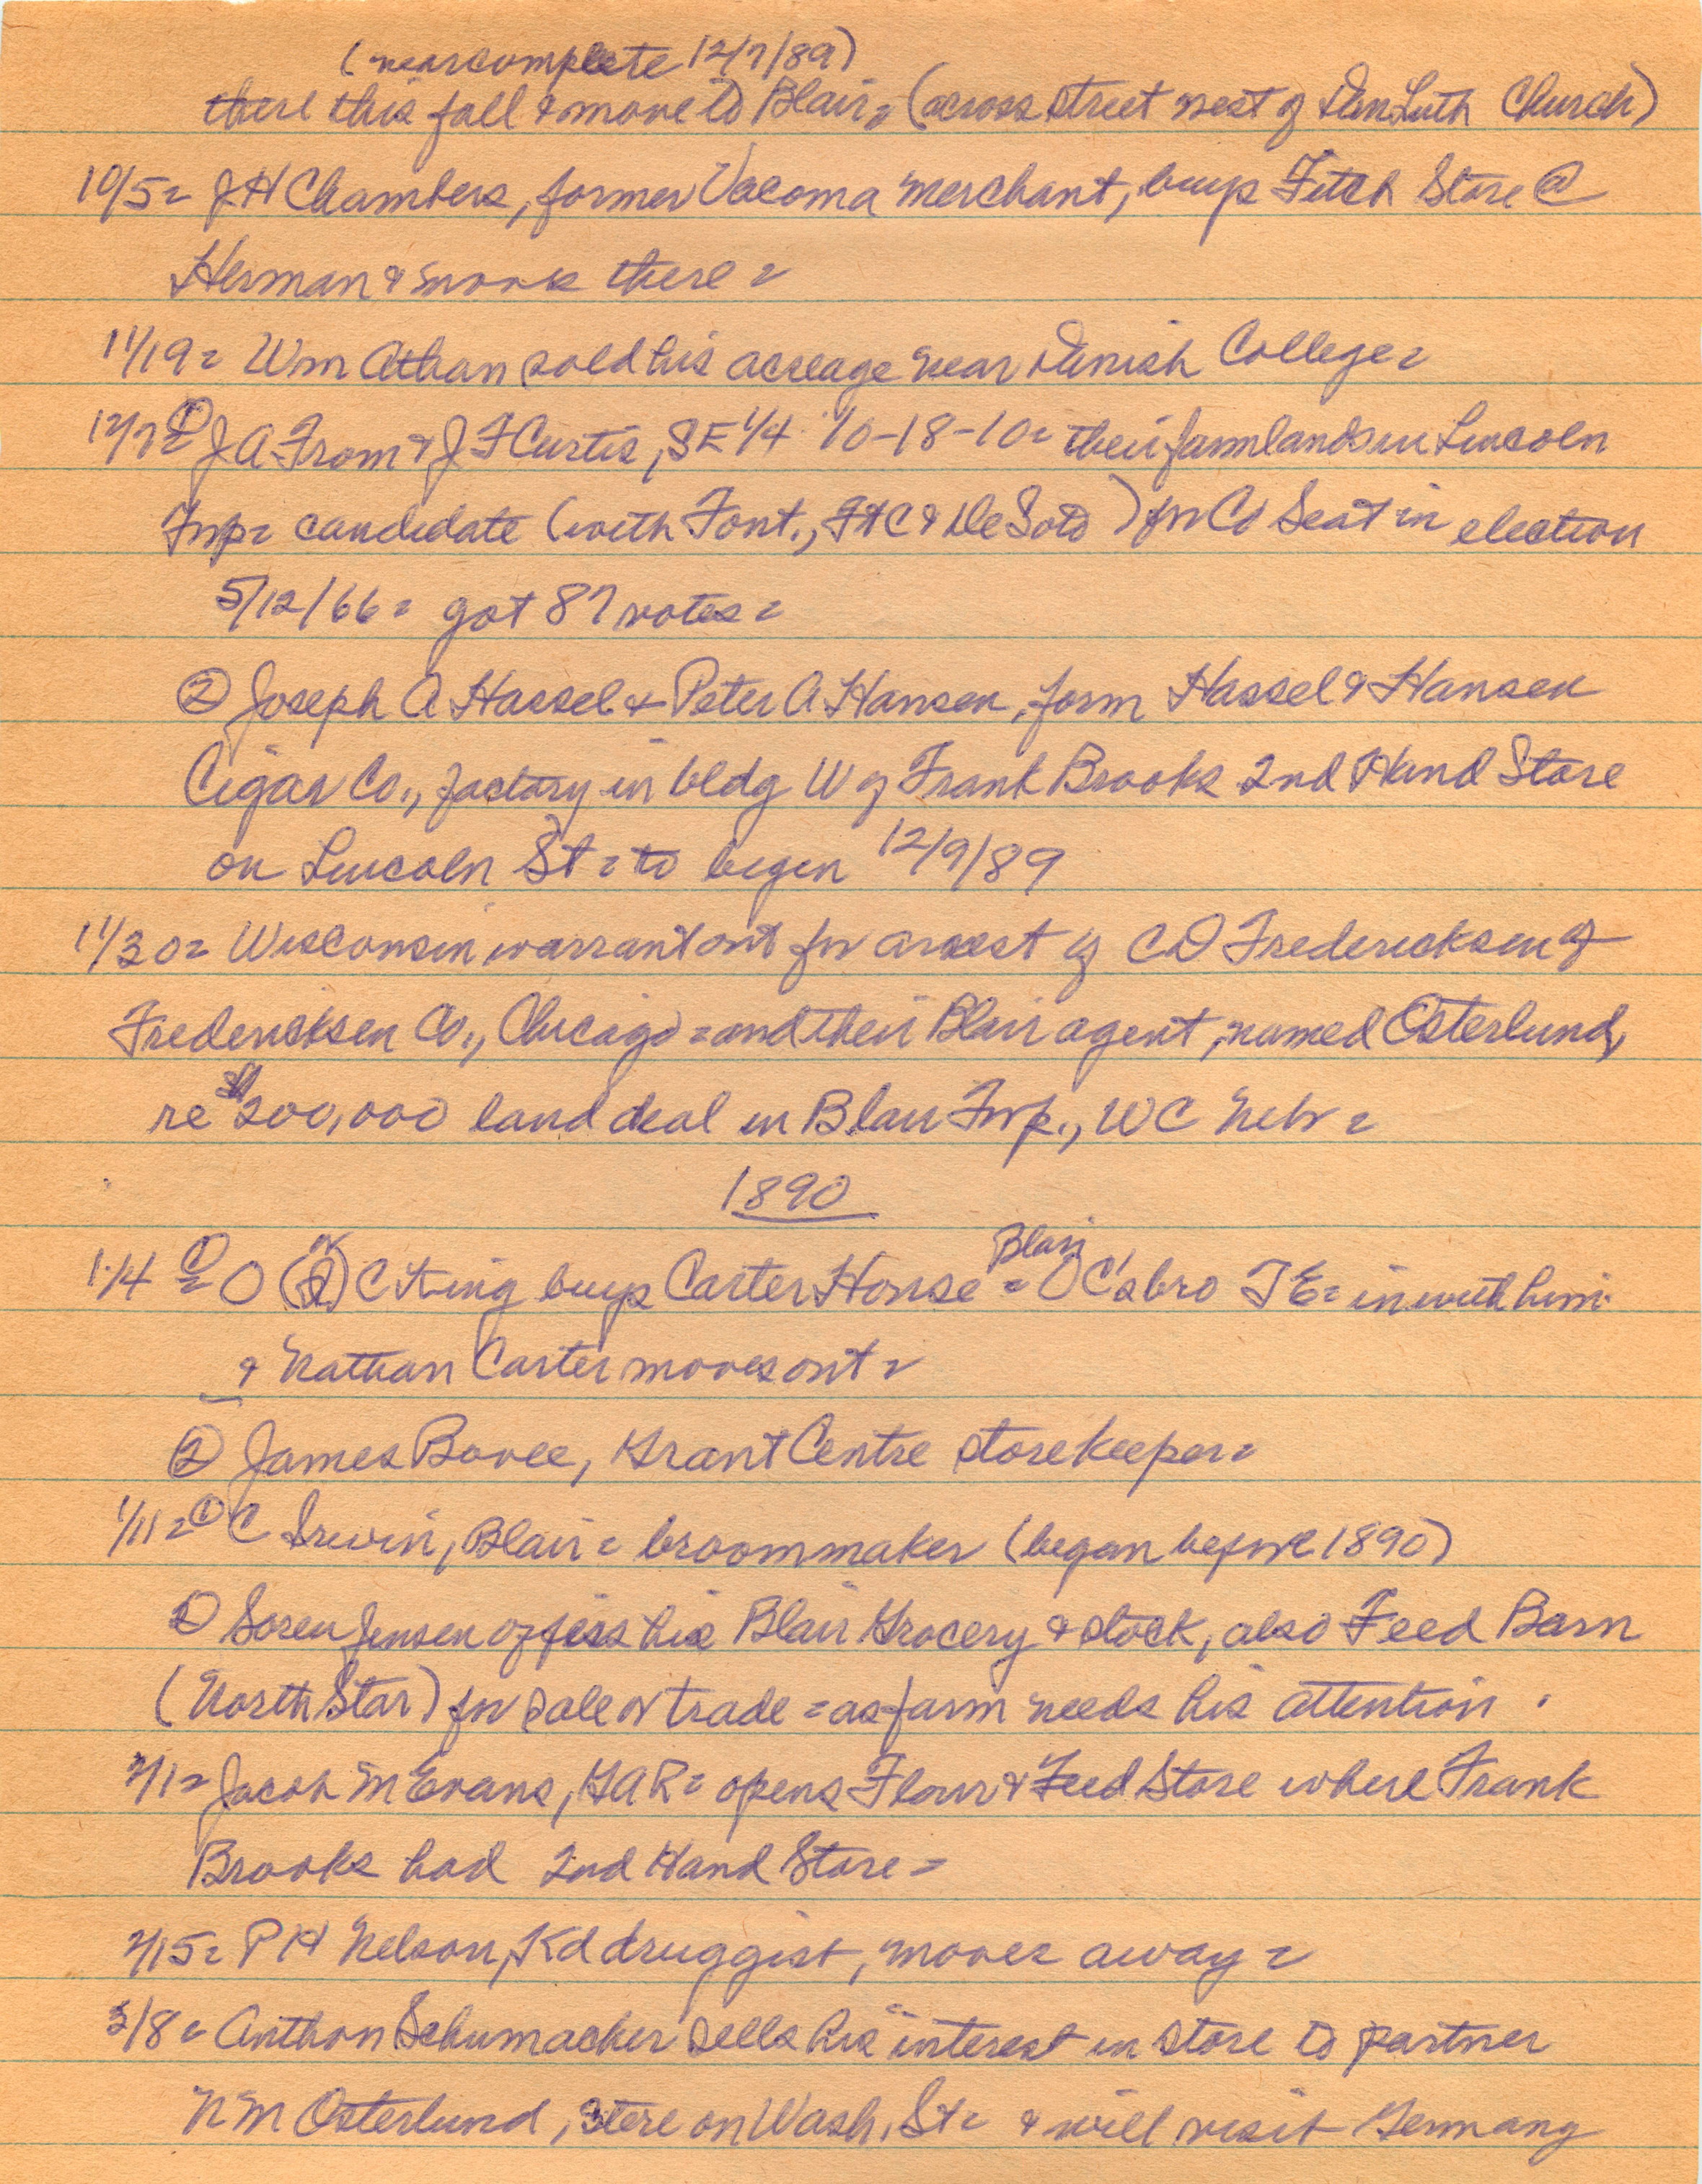 (near complete 12/7/89)
there this fall & move to Blair = (across street west of Dan Luth Church)
10/5 = J H Chambers, former Vacoma merchant, buys Fitch Store @
Herman & moves there =
11/19 = Wm Athan sold his acreage near Danish College =
12/7 = ① J A From & J F Curtis, SE 1/4 10-18-10 = their farmlands in Lincoln
Twp = candidate (with Font., Ft C & De Soto) for Co Seat in election
5/12/66 = got 87 votes =
② Joseph A Hassel & Peter A Hansen, form Hassel & Hansen
Cigar Co., factory in bldg W of Frank Brooks 2nd Hand Store
on Lincoln St = to begin 12/9/89
11/30 = Wisconsin warrant out for arrest of C D Fredericksen of
Fredericksen Co., Chicago = and their Blair agent, named Osterlund,
re $200,000 land deal in Blair Twp., WC Nebr =
1890
1/4 = ① O (or) C King buys Carter House Blair = O C's bro T E = in with him
& Nathan Carter moves out =
② James Bovee, Grant Centre storekeeper =
1/11 = ① C Irwin, Blair = broommaker (began before 1890)
② Soren Jensen offers his Blair Grocery & stock, also Feed Barn
(North Star) for sale or trade = as farm needs his attention .
2/1 = Jacob M Evans, GAR = opens Flour & Feed Store where Frank
Brooks had 2nd Hand Store =
2/15 = P H Nelson, Kd druggist, moves away =
3/8 = Anthon Schumacher sells his interest in store to partner
N M Osterlund, store on Wash. St = & will visit Germany